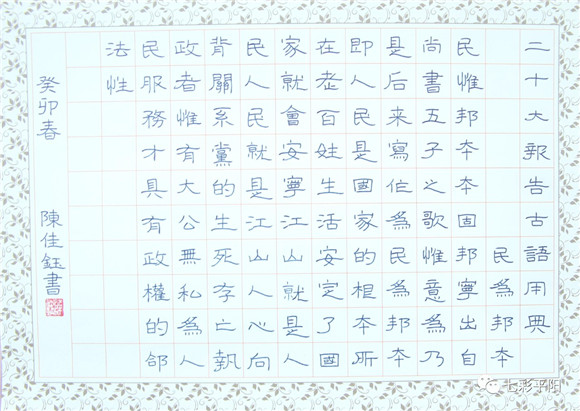 二十大報告古語用典
民為邦本
民惟邦本本固邦寧出自
尚書五子之歌惟意為乃
是后来寫作為民為邦本
即人民是國家的根本所
在老百姓生活安定了國
家就會安寧江山就是人
民人民就是江山人心向
背關系黨的生死存亡執
政者惟有大公無私為人
民服務才具有政權的郃
法性
癸卯春 陳佳鈺書
七彩平阳